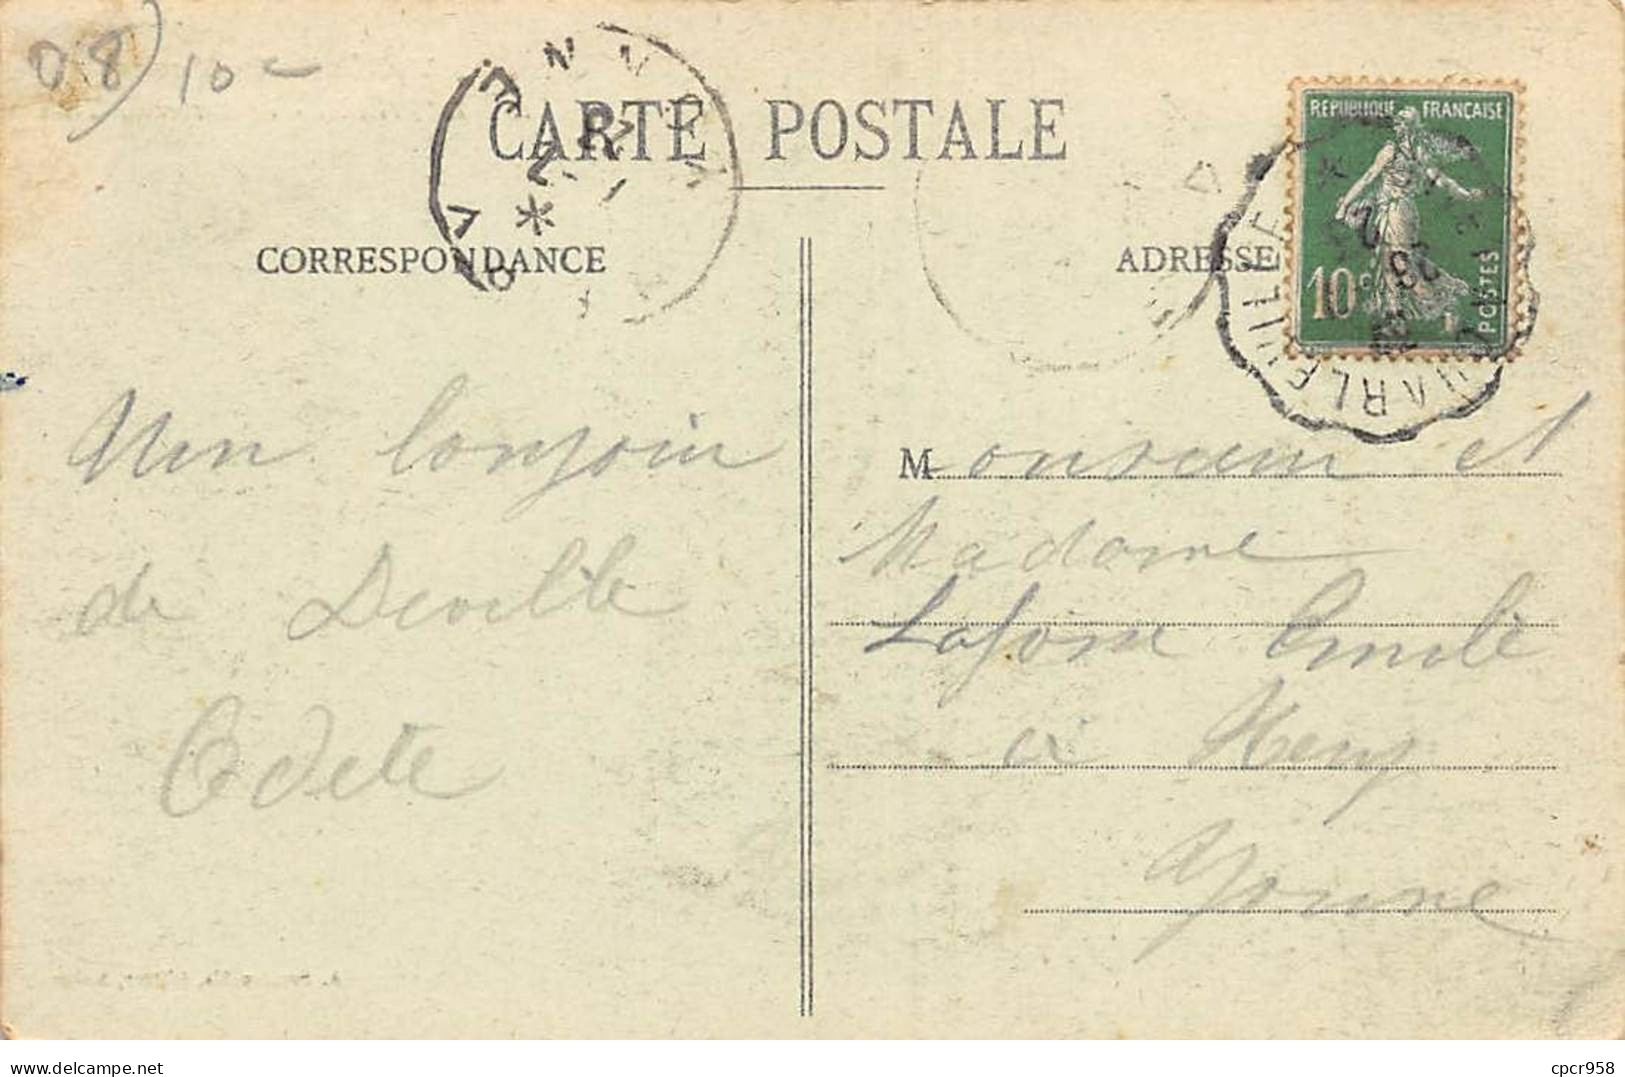 08) 10
CARTE POSTALE
CORRESPONDANCE
ADRESSE
REPUBLIQUE FRANÇAISE
10 c
POSTES
Un conjoin
de Deville
Odete
Monsieur et
Madame
Lafosse Emile
à Hery
Yonne
cpcr958